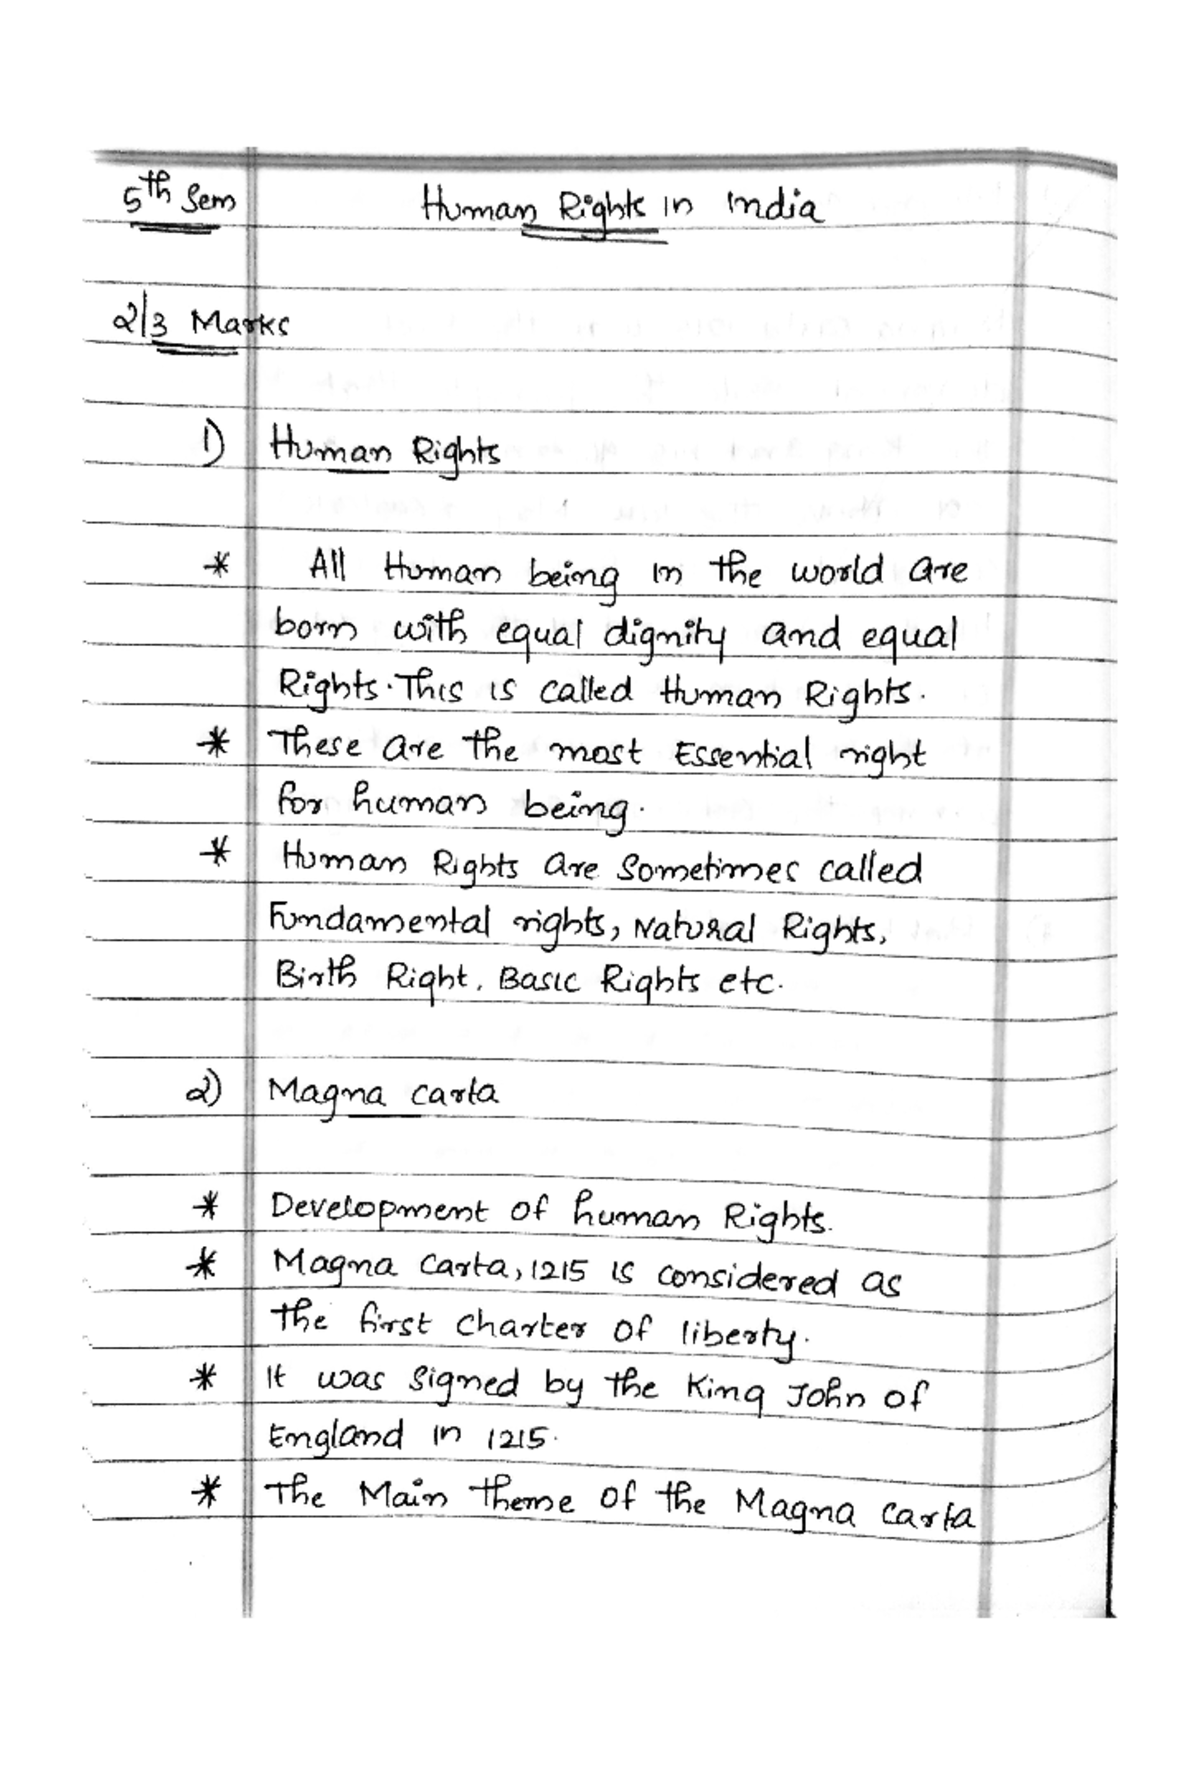 5th Sem
Human Rights in India
2/3 Marks
1) Human Rights
* All Human being in the world are
born with equal dignity and equal
Rights. This is called Human Rights.
* These are the most Essential right
for human being.
* Human Rights are sometimes called
Fundamental rights, Natural Rights,
Birth Right, Basic Rights etc.
2) Magna Carta
* Development of human Rights.
* Magna Carta, 1215 is considered as
the first charter of liberty.
* It was signed by the King John of
England in 1215.
* The Main theme of the Magna Carta